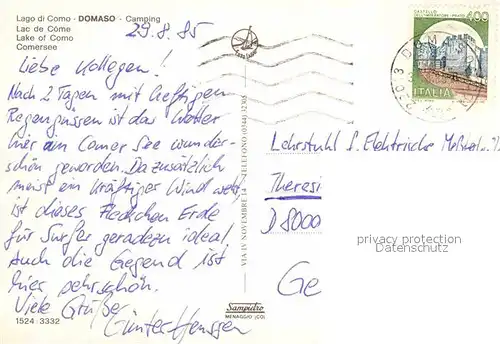 Lago di Como - DOMASO - Camping
Lac de Côme
Lake of Como
Comersee
29.8.85
Liebe Kollegen!
Nach 2 Tagen mit heftigen
Regengüssen ist das Wetter
hier am Comer See wunder-
schön geworden. Da zusätzlich
meist ein kräftiger Wind weht,
ist dieses Fleckchen Erde
für Surfer geradezu ideal.
Auch die Gegend ist
hier sehr schön.
Viele Grüße
Günter Henssen
1524 - 3332
VIA IV NOVEMBRE 14 - TELEFONO (0344) 32305
Sampietro
MENAGGIO (CO)
CASTELLO
DELL'IMPERATORE - PRATO
400
ITALIA
Lehrstuhl f. Elektrische
Theresi
D 8000
Ge
privacy protection
Datenschutz